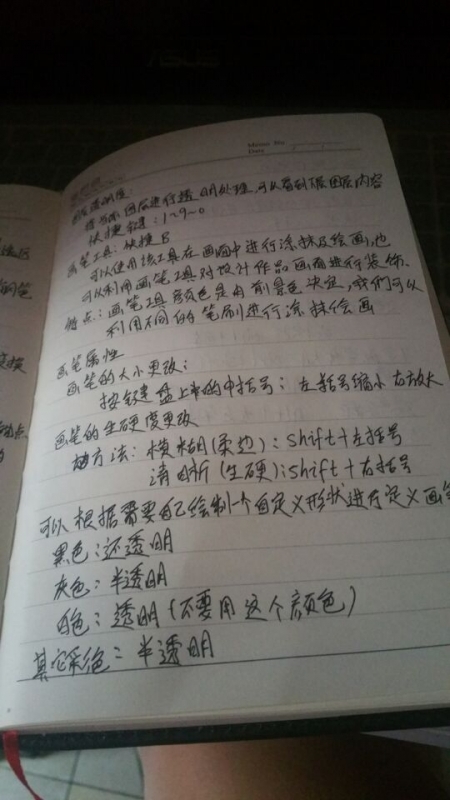 ASUS
Memo No.
Date
图层透明度:
指当前图层进行透明处理,可以看到底图层内容
快捷键:1~9~0
画笔工具:快捷B
可以使用该工具在画面中进行涂抹及绘画,也
可以利用画笔工具对设计作品画面进行装饰.
特点:画笔工具颜色是由前景色决定,我们可以
利用不同的笔刷进行涂抹绘画
画笔属性
画笔的大小更改:
按键盘上的中括号:左括号缩小 右放大
画笔的生硬度更改
方法:模糊(柔边):Shift+左括号
清晰(生硬):Shift+右括号
可以根据需要自己绘制一个自定义形状进行定义画笔
黑色:不透明
灰色:半透明
白色:透明(不要用这个颜色)
其它彩色:半透明